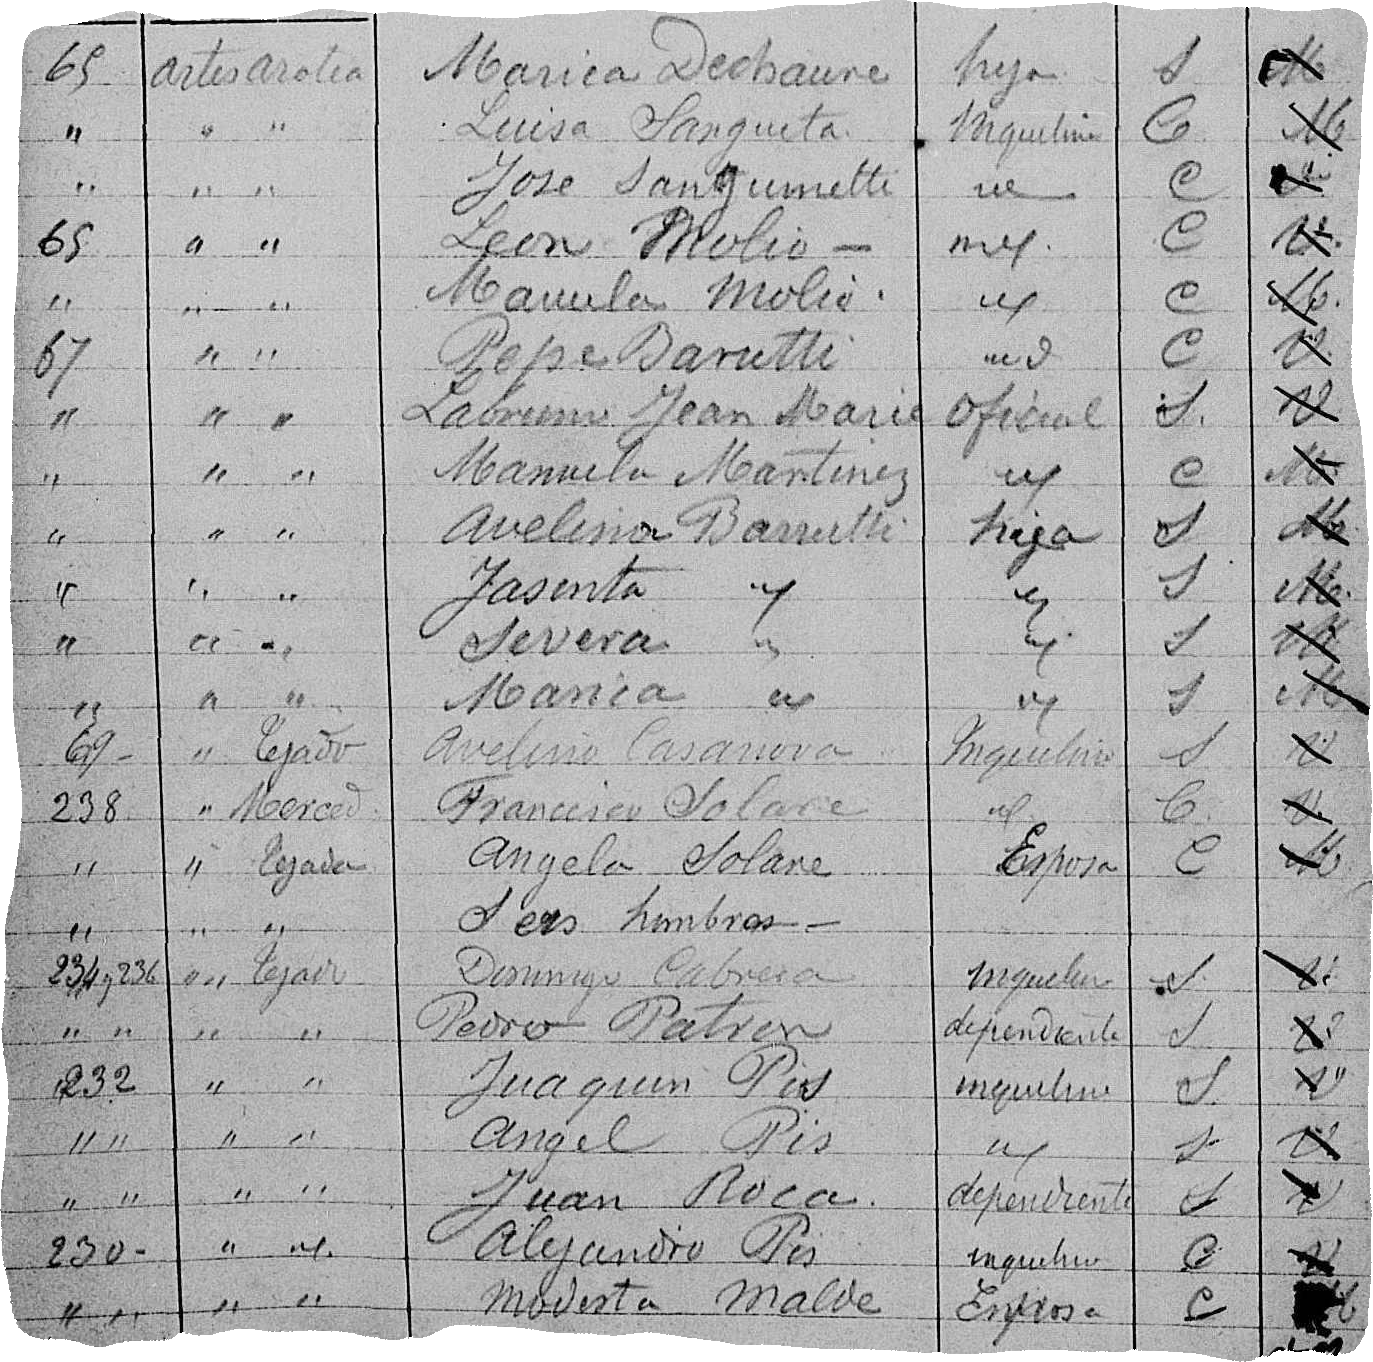 65 artes arotea Marica Dechaure hija S M
" " " Luisa Sangueta Inquelina C M
" " " Jose Sanguinetti C
65 " " Leon Molio — C V.
" " " Manuela Molio. C M.
67 " " Pepe Barutti C V.
" " " Labrunn Jean Marie Oficial S. V
" " " Manuela Martinez C M
" " " Avelina Barrutti hija S M
" " " Jasenta " " S M.
" " " Severa " " S M
" " " Marica " " S M
69 - " Tejado Avelino Casanova Inquelino S V
238 " Merced Francisco Solare C. V.
" " Tejada Angela Solare Esposa C M
" " " Seis hombres —
234 y 236 " " Tejado Domingo Cabrera inquelin S. V.
" " " " Pedro Patron dependiente S V
232 " " Juaquin Pis inquelino S. V
" " " " Angel Pis S V
" " " " Juan Roca. dependiente S V
230 - " Alejandro Pis inquelino C V
" " " " Modesta Malde Esposa C